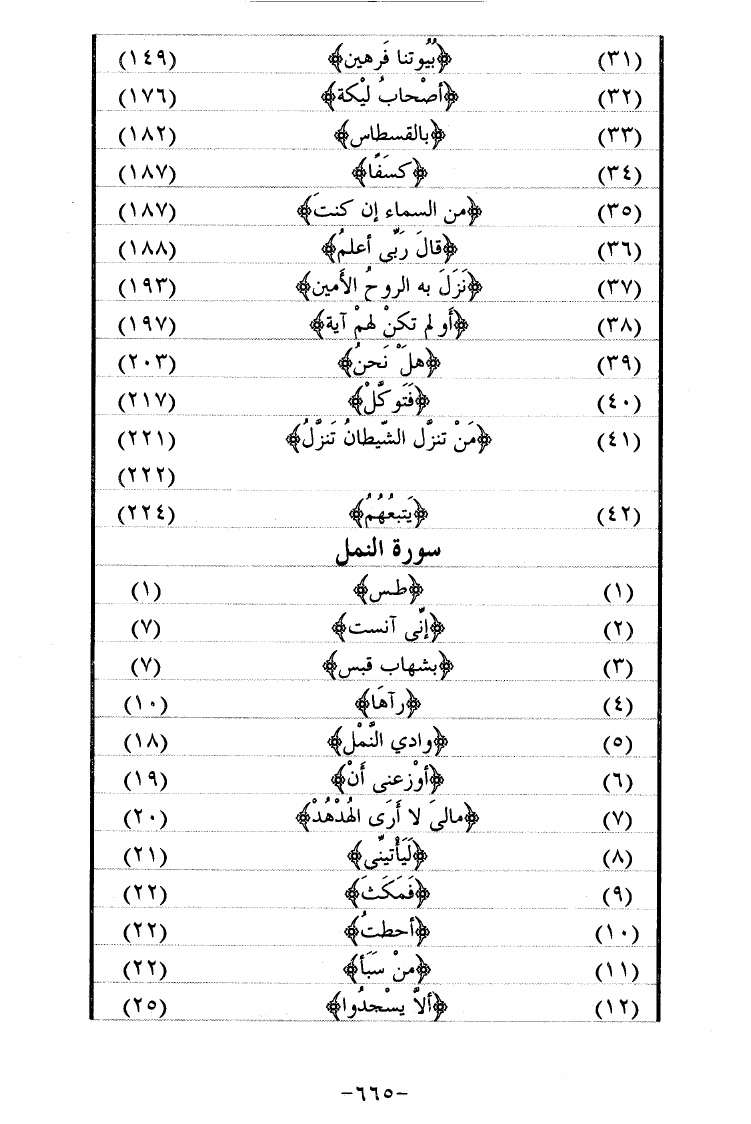 (٣١) ﴿بُيُوتنا فَرهين﴾ (١٤٩)
(٣٢) ﴿أصْحابُ لَيْكة﴾ (١٧٦)
(٣٣) ﴿بالقسطاس﴾ (١٨٢)
(٣٤) ﴿كسَفًا﴾ (١٨٧)
(٣٥) ﴿من السماء إن كنتَ﴾ (١٨٧)
(٣٦) ﴿قالَ رَبِّى أعلمُ﴾ (١٨٨)
(٣٧) ﴿نَزَلَ به الروحُ الأَمين﴾ (١٩٣)
(٣٨) ﴿أَو لم تكنْ لهمْ آية﴾ (١٩٧)
(٣٩) ﴿هلْ نَحنُ﴾ (٢٠٣)
(٤٠) ﴿فَتَوكَّلْ﴾ (٢١٧)
(٤١) ﴿مَنْ تنزَّل الشَّيطانُ تَنزَّلُ﴾ (٢٢١)
(٢٢٢)
(٤٢) ﴿يَتبعُهُمُ﴾ (٢٢٤)
سورة النمل
(١) ﴿طس﴾ (١)
(٢) ﴿إنِّى آنست﴾ (٧)
(٣) ﴿بشهاب قبس﴾ (٧)
(٤) ﴿رآهَا﴾ (١٠)
(٥) ﴿وادي النَّمْل﴾ (١٨)
(٦) ﴿أوْزعنى أَنْ﴾ (١٩)
(٧) ﴿مالىَ لا أَرَى الهُدْهُدْ﴾ (٢٠)
(٨) ﴿لَيَأْتينِّى﴾ (٢١)
(٩) ﴿فَمَكَثَ﴾ (٢٢)
(١٠) ﴿أحطتُ﴾ (٢٢)
(١١) ﴿منْ سَبَأ﴾ (٢٢)
(١٢) ﴿ألاَّ يسْجدُوا﴾ (٢٥)
-٦٦٥-